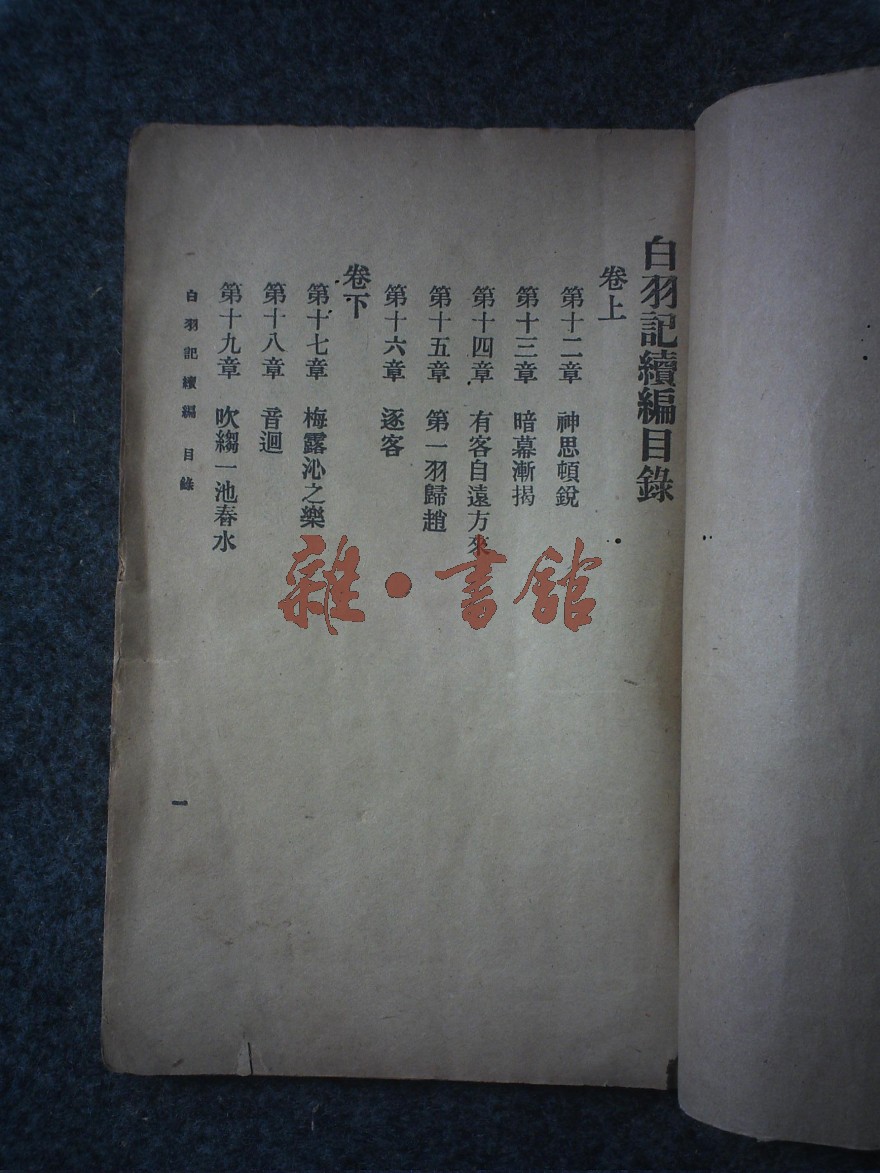 白羽記續編目錄
卷上
第十二章　神思頓銳
第十三章　暗幕漸揭
第十四章　有客自遠方來
第十五章　第一羽歸趙
第十六章　逐客
卷下
第十七章　梅露沁之樂
第十八章　音迴
第十九章　吹縐一池春水
白羽記續編　目錄
一
雜·書館